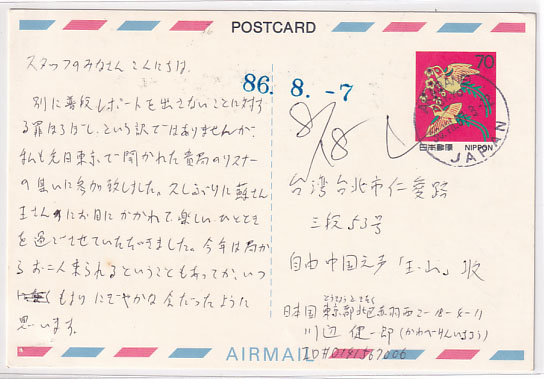 POSTCARD
スタッフのみなさん こんにちは。
別に普段レポートを出さないことに対す
る罪ほろぼし、という訳ではありませんが、
私も先日東京で開かれた貴局のリスナー
の集いに参加致しました。久しぶりに蘇さん
王さんにお目にかかれて楽しいひととき
を過ごさせていただきました。今年は局か
らお二人来られるということもあってか、いつ
もよりにぎやかな会だったように
思います。
86. 8. -7
8/18
70
日本郵便 NIPPON
JAPAN
台湾台北市仁愛路
三段53号
自由中国之声「玉山」収
とうきょうと きたく
日本国東京都北区赤羽西2-18-4-11
川辺 健一郎 (かわべけんいちろう)
AIRMAIL